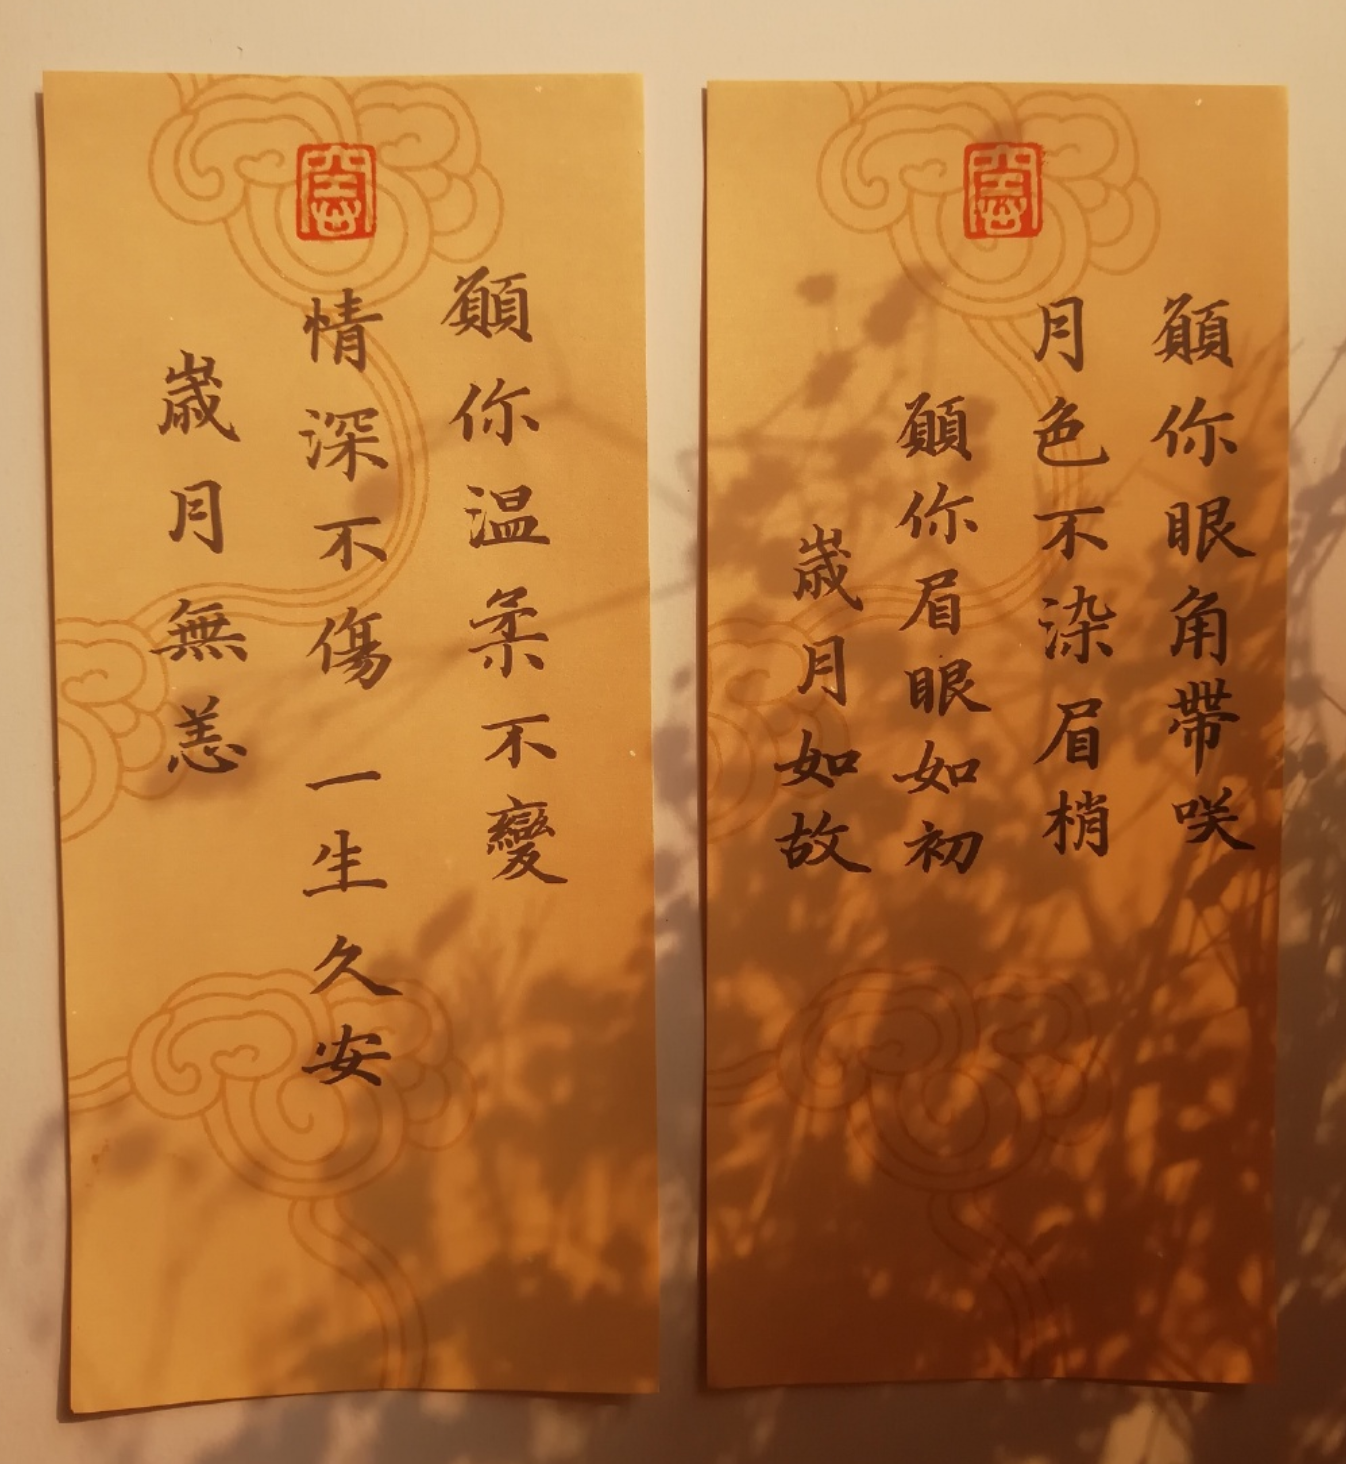 願你眼角帶咲
月色不染眉梢
願你眉眼如初
嵗月如故
願你温柔不變
情深不傷一生久安
嵗月無恙